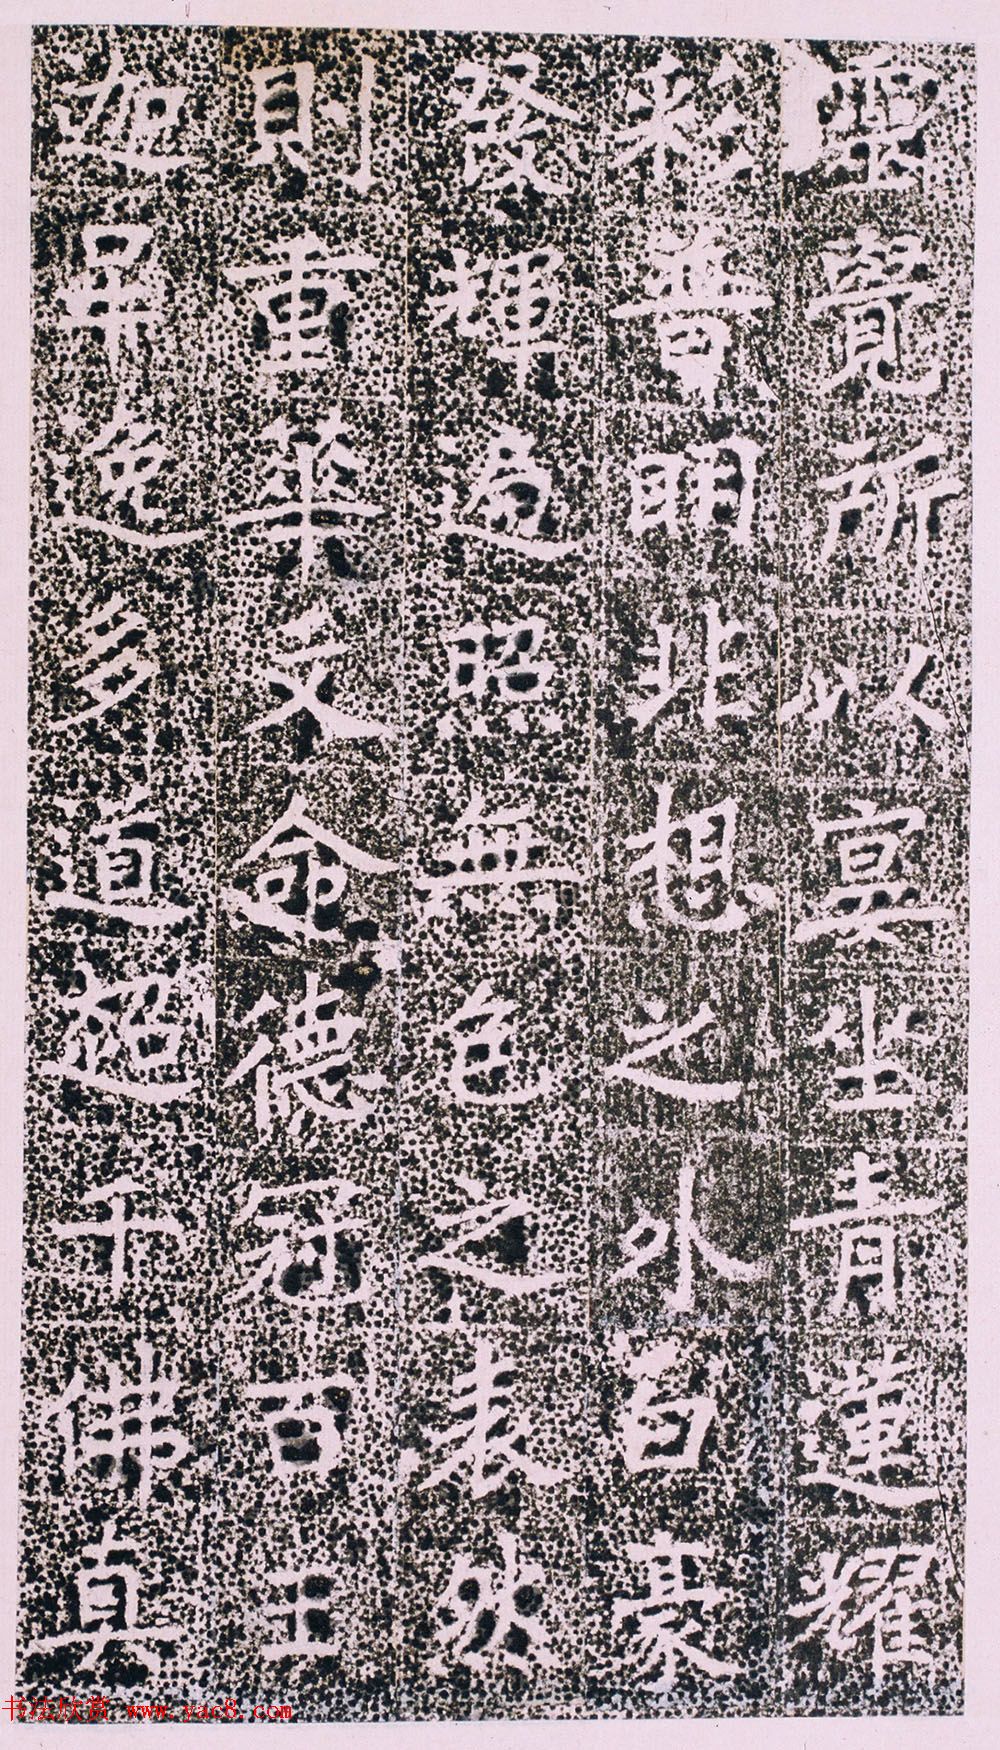 霊覺所以宴坐青蓮耀
彩普明非想之外白豪
發輝遍昭無色之表然
則重華文命德冠百王
迦牟逸多道超千佛真
书法欣赏 www.yac8.com